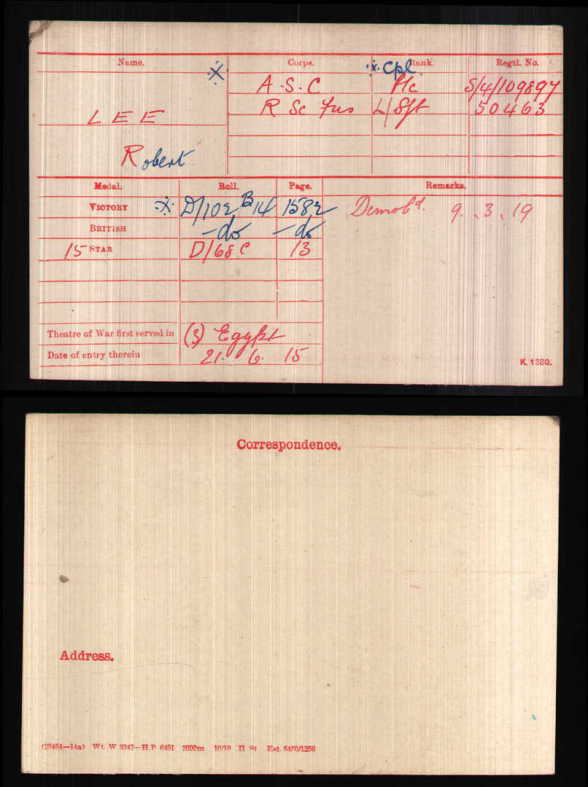 Name. Corps. Rank. Regtl. No.
※ ※ Cpl
A.S.C Pte S/4/109897
LEE R Sc Fus L/Sjt 50463
Robert
Medal. Roll. Page. Remarks.
VICTORY ※ D/102 B14 1582 Demobd. 9.3.19
BRITISH -do- -do-
15 STAR D/68C 13
Theatre of War first served in (3) Egypt
Date of entry therein 21. 6. 15
K. 1380.
Correspondence.
Address.
Wt. W 3247—H.P.